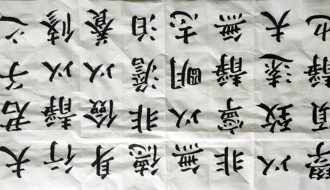 夫君子之
行靜以修
身儉以養
德非澹泊
無以明志
非寧靜無
以致遠夫
學須靜也